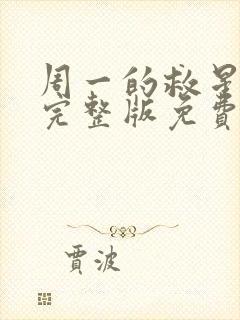 周一的救星
完整版免費
賈波